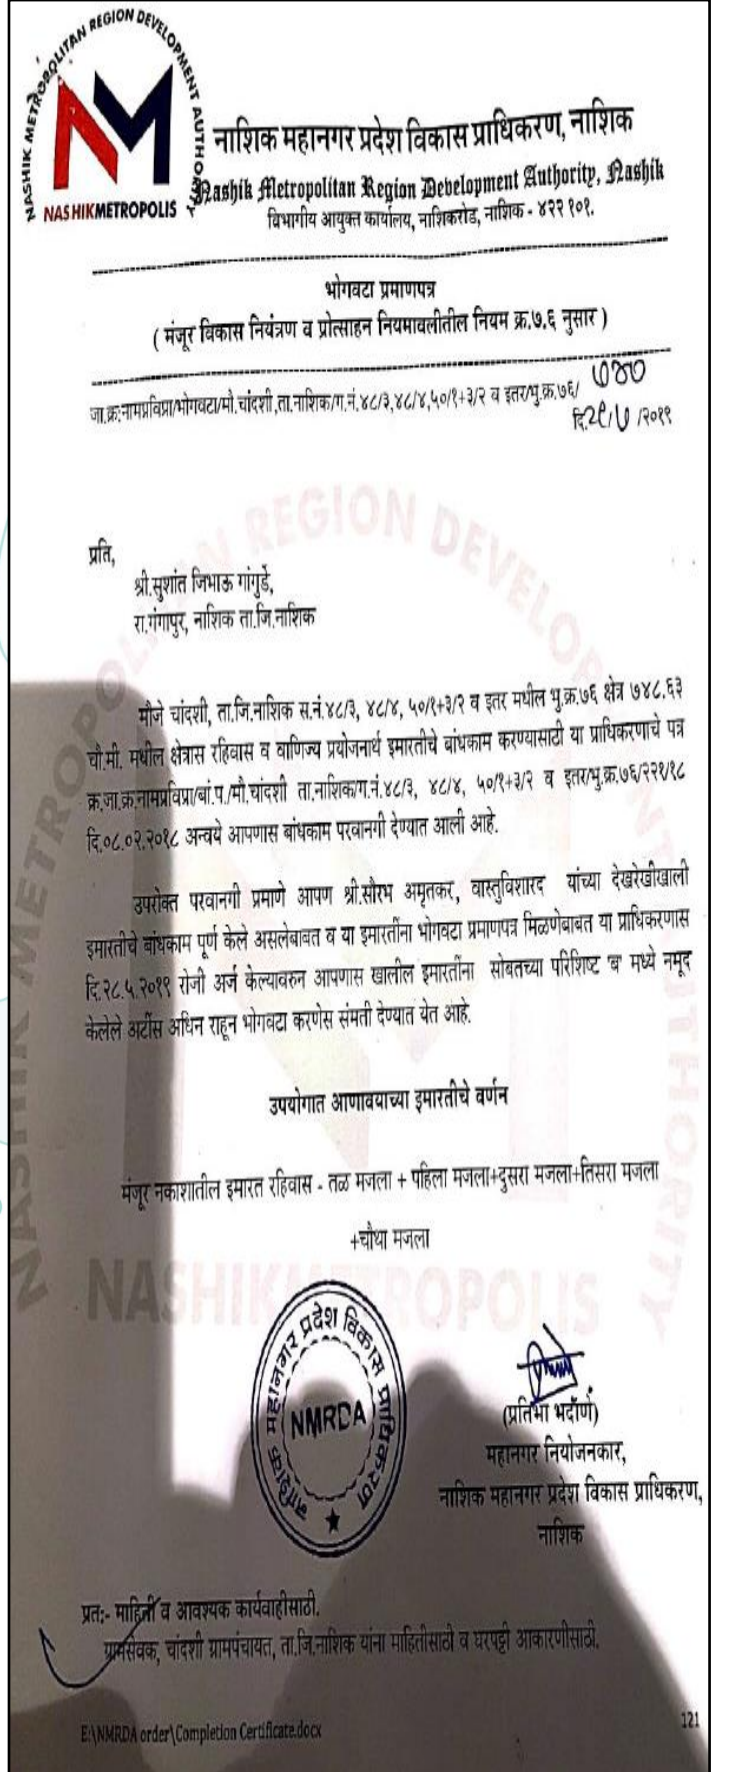 NASHIK METROPOLITAN REGION DEVELOPMENT AUTHORITY
NM
NASHIKMETROPOLIS
नाशिक महानगर प्रदेश विकास प्राधिकरण, नाशिक
Nashik Metropolitan Region Development Authority, Nashik
विभागीय आयुक्त कार्यालय, नाशिकरोड, नाशिक - ४२२ १०१.
भोगवटा प्रमाणपत्र
( मंजूर विकास नियंत्रण व प्रोत्साहन नियमावलीतील नियम क्र.७.६ नुसार )
जा.क्र:नामप्रविप्रा/भोगवटा/मौ.चांदशी,ता.नाशिक/ग.नं.४८/३,४८/४,५०/१+३/२ व इतर/भु.क्र.७६/ ७४०
दि.२९/७ /२०१९
प्रति,
श्री.सुशांत जिभाऊ गांगुर्डे,
रा.गंगापुर, नाशिक ता.जि.नाशिक
मौजे चांदशी, ता.जि.नाशिक स.नं.४८/३, ४८/४, ५०/१+३/२ व इतर मधील भु.क्र.७६ क्षेत्र ७४८.६३
चौ.मी. मधील क्षेत्रास रहिवास व वाणिज्य प्रयोजनार्थ इमारतीचे बांधकाम करण्यासाठी या प्राधिकरणाचे पत्र
क्र.जा.क्र.नामप्रविप्रा/बां.प./मौ.चांदशी ता.नाशिक/ग.नं.४८/३, ४८/४, ५०/१+३/२ व इतर/भु.क्र.७६/२२१/१८
दि.०८.०२.२०१८ अन्वये आपणास बांधकाम परवानगी देण्यात आली आहे.
उपरोक्त परवानगी प्रमाणे आपण श्री.सौरभ अमृतकर, वास्तुविशारद यांच्या देखरेखीखाली
इमारतीचे बांधकाम पूर्ण केले असलेबाबत व या इमारतींना भोगवटा प्रमाणपत्र मिळणेबाबत या प्राधिकरणास
दि.२८.५.२०१९ रोजी अर्ज केल्यावरुन आपणास खालील इमारतींना सोबतच्या परिशिष्ट 'ब' मध्ये नमूद
केलेले अटींस अधिन राहून भोगवटा करणेस संमती देण्यात येत आहे.
उपयोगात आणावयाच्या इमारतीचे वर्णन
मंजूर नकाशातील इमारत रहिवास - तळ मजला + पहिला मजला+दुसरा मजला+तिसरा मजला
+चौथा मजला
नाशिक महानगर प्रदेश विकास प्राधिकरण
NMRDA
(प्रतिभा भदाणे)
महानगर नियोजनकार,
नाशिक महानगर प्रदेश विकास प्राधिकरण,
नाशिक
प्रत:- माहिती व आवश्यक कार्यवाहीसाठी.
ग्रामसेवक, चांदशी ग्रामपंचायत, ता.जि.नाशिक यांना माहितीसाठी व घरपट्टी आकारणीसाठी.
E:\NMRDA order\Completion Certificate.docx
121